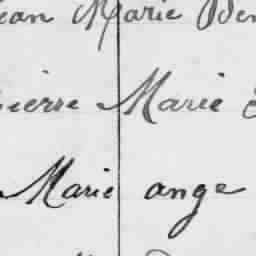 Jean Marie
Pierre Marie
Marie ange